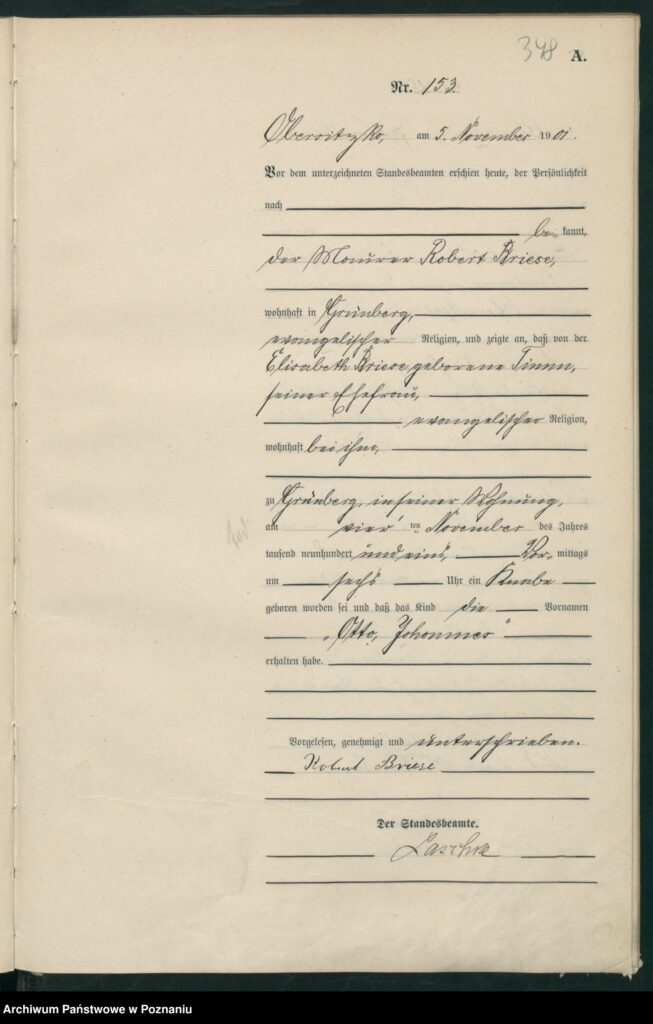 348 A.
Nr. 153.
Obersitzko, am 5. November 1901.
Vor dem unterzeichneten Standesbeamten erschien heute, der Persönlichkeit
nach
be= kannt,
der Maurer Robert Briese,
wohnhaft in Grünberg,
evangelischer Religion, und zeigte an, daß von der
Elisabeth Briese geborene Timm,
seiner Ehefrau,
evangelischer Religion,
wohnhaft bei ihm,
zu Grünberg, in seiner Wohnung,
am vier ten November des Jahres
tausend neunhundert und eins, Vor= mittags
um sechs Uhr ein Knabe
geboren worden sei und daß das Kind die Vornamen
"Otto, Johannes"
erhalten habe.
Vorgelesen, genehmigt und unterschrieben.
Robert Briese
Der Standesbeamte.
Archiwum Państwowe w Poznaniu